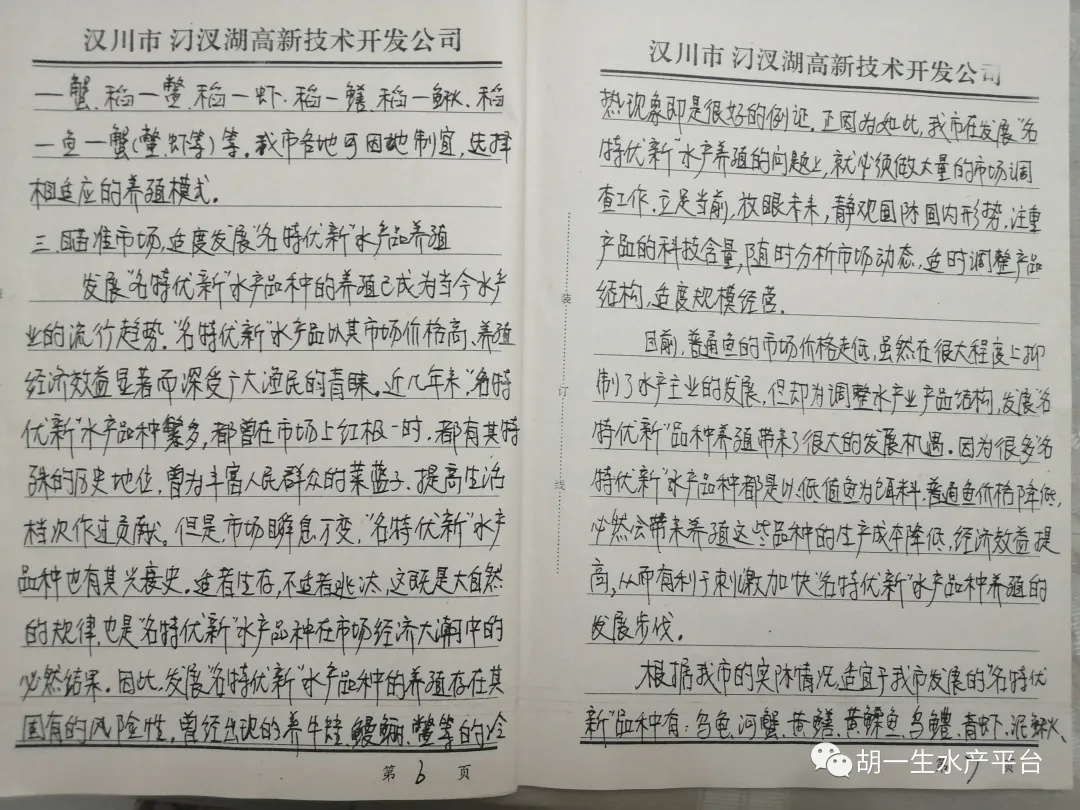 汉川市 汈汊湖高新技术开发公司
一蟹、稻一鳖、稻一虾、稻一鳝、稻一鳅、稻
一鱼一蟹(鳖、虾等)等。我市各地可因地制宜，选择
相适应的养殖模式。
三、瞄准市场，适度发展“名特优新”水产品养殖
发展“名特优新”水产品种的养殖已成为当今水产
业的流行趋势。“名特优新”水产品以其市场价格高、养殖
经济效益显著而深受广大渔民的青睐。近几年来，“名特
优新”水产品种繁多，都曾在市场上红极一时，都有其特
殊的历史地位，曾为丰富人民群众的菜蓝子、提高生活
档次作过贡献。但是，市场瞬息万变，“名特优新”水产
品种也有其兴衰史。适者生存，不适者逃汰，这既是大自然
的规律，也是“名特优新”水产品种在市场经济大潮中的
必然结果。因此，发展“名特优新”水产品种的养殖存在其
固有的风险性，曾经出现的养牛蛙、鳗鲡、鳖等的冷
第 6 页
汉川市 汈汊湖高新技术开发公司
热现象即是很好的例证。正因为如此，我市在发展“名
特优新”水产养殖的问题上，就必须做大量的市场调
查工作，立足当前，放眼未来，静观国际国内形势，注重
产品的科技含量，随时分析市场动态，适时调整产品
结构，适度规模经营。
目前，普通鱼的市场价格走低，虽然在很大程度上抑
制了水产主业的发展，但却为调整水产业产品结构，发展“名
特优新”品种养殖带来了很大的发展机遇。因为很多“名
特优新”水产品种都是以低值鱼为饵料，普通鱼价格降低，
必然会带来养殖这些品种的生产成本降低，经济效益提
高，从而有利于刺激加快“名特优新”水产品种养殖的
发展步伐。
根据我市的实际情况，适宜于我市发展的“名特优
新”品种有：乌龟、河蟹、黄鳝、黄鲽鱼、乌鳢、青虾、泥鳅、
第 7 页
装
订
线
胡一生水产平台